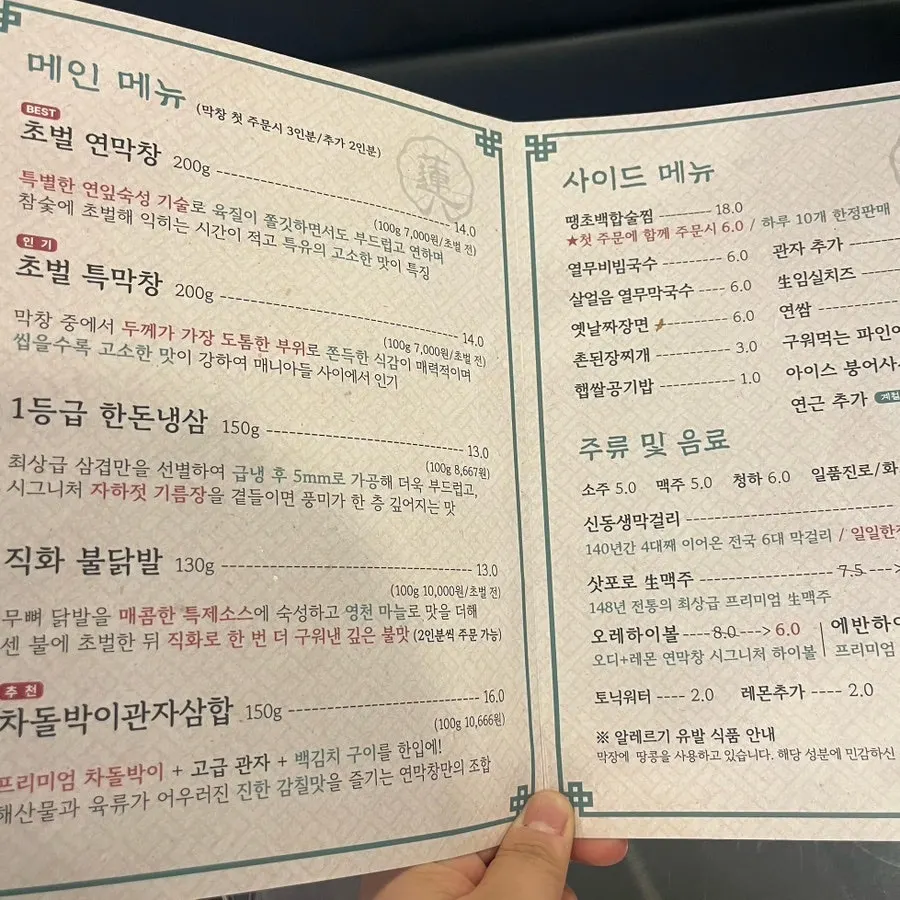 메인 메뉴 (막창 첫 주문시 3인분/추가 2인분)
BEST
초벌 연막창 200g 14.0
(100g 7,000원/초벌 전)
특별한 연잎숙성 기술로 육질이 쫄깃하면서도 부드럽고 연하며
참숯에 초벌해 익히는 시간이 적고 특유의 고소한 맛이 특징
인기
초벌 특막창 200g 14.0
(100g 7,000원/초벌 전)
막창 중에서 두께가 가장 도톰한 부위로 쫀득한 식감이 매력적이며
씹을수록 고소한 맛이 강하여 매니아들 사이에서 인기
1등급 한돈냉삼 150g 13.0
(100g 8,667원)
최상급 삼겹만을 선별하여 급냉 후 5mm로 가공해 더욱 부드럽고,
시그니처 자하젓 기름장을 곁들이면 풍미가 한 층 깊어지는 맛
직화 불닭발 130g 13.0
(100g 10,000원/초벌 전)
무뼈 닭발을 매콤한 특제소스에 숙성하고 영천 마늘로 맛을 더해
센 불에 초벌한 뒤 직화로 한 번 더 구워낸 깊은 불맛 (2인분씩 주문 가능)
추천
차돌박이관자삼합 150g 16.0
(100g 10,666원)
프리미엄 차돌박이 + 고급 관자 + 백김치 구이를 한입에!
해산물과 육류가 어우러진 진한 감칠맛을 즐기는 연막창만의 조합
蓮
사이드 메뉴
땡초백합술찜 18.0
★첫 주문에 함께 주문시 6.0 / 하루 10개 한정판매
열무비빔국수 6.0 관자 추가
살얼음 열무막국수 6.0 生임실치즈
옛날짜장면 6.0 연쌈
촌된장찌개 3.0 구워먹는 파인
햅쌀공기밥 1.0 아이스 붕어사
연근 추가
주류 및 음료
소주 5.0 맥주 5.0 청하 6.0 일품진로/화
신동생막걸리
140년간 4대째 이어온 전국 6대 막걸리 / 일일한
삿포로 生맥주 7.5 -->
148년 전통의 최상급 프리미엄 生맥주
오레하이볼 8.0 ---> 6.0 에반하이
오디+레몬 연막창 시그니처 하이볼 프리미엄
토닉워터 2.0 레몬추가 2.0
※ 알레르기 유발 식품 안내
막장에 땅콩을 사용하고 있습니다. 해당 성분에 민감하신